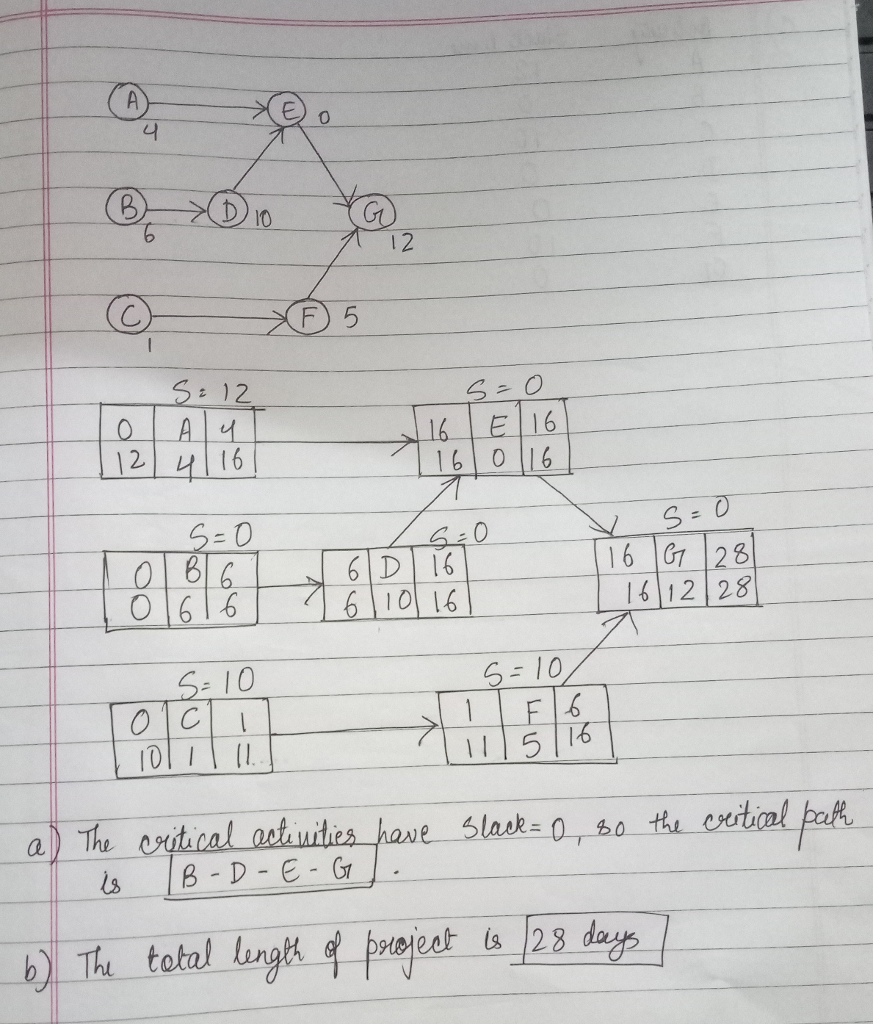 A E 0
4
B D 10 G
6 12
C F 5
1
S=12 S=0
0 A 4 16 E 16
12 4 16 16 0 16
S=0 S=0 S=0
0 B 6 6 D 16 16 G 28
0 6 6 6 10 16 16 12 28
S=10 S=10
0 C 1 1 F 6
10 1 11. 11 5 16
a) The critical activities have slack=0, so the critical path
is B-D-E-G.
b) The total length of project is 28 days